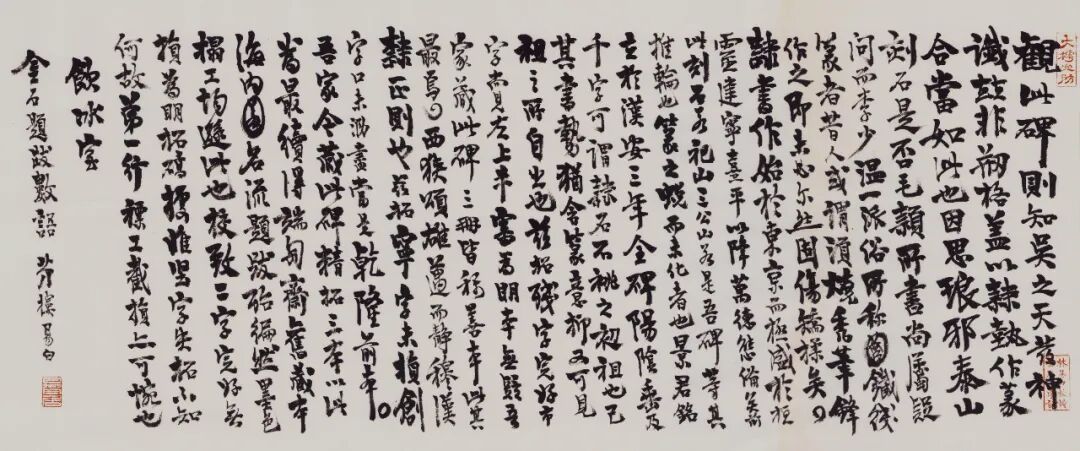 觀此碑則知吳之天發神
讖茲非刱格蓋以隸執作篆
合當如此也因思琅邪泰山
刻石是否毛穎所書尚屬疑
問而李少溫一派俗所称鐵綫
篆者昔人或謂須燒秃筆鋒
作之即未必尔然固傷矯揉矣
隸書作始於東京而極盛於桓
靈建寧熹平以降萬德態備矣前
此刻石若祀山三公山若是吾碑等其
推輪也篆之蛻而未化者也景君銘
立於漢安三年全碑陽陰垂及
千字可謂隸石不祧之初祖也已
其書勢猶含篆意抑又可見
祖之所自出也茲拓殘字完好市
字賞左上半審為明本無疑吾
家藏此碑三冊皆称善本此其
最焉西狹頌雄邁而靜穆漢
隸正則也茲拓寧字未損創
字口未泐盡當是乾隆前本
吾家今藏此碑精拓三本以此
為最續得端匋齋舊藏本
海內名流題跋殆徧然墨色
榻工均遜此也校致二字完好無
損為明拓確據惟坚字失拓不知
何故第一行裱工截損上可惋也
飲冰室
金石題跋數語